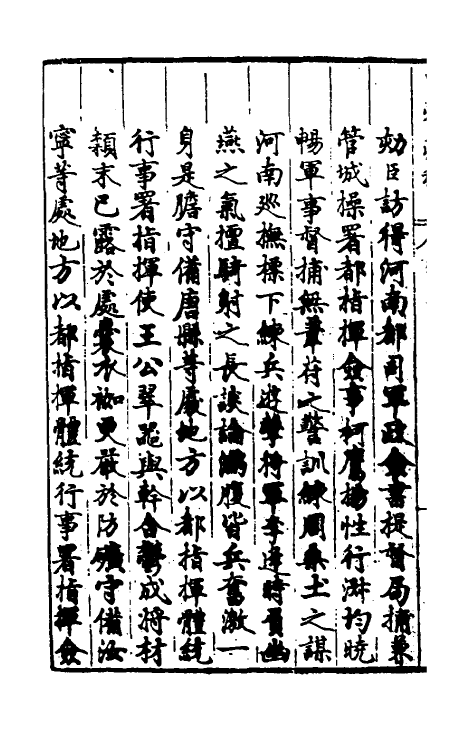 勑臣訪得河南都司軍政僉書提督局捕兼
管城操署都指揮僉事柯鷹揚性行淋均曉
暢軍事督捕無萑苻之警訓練周桑土之謀
河南廵撫標下練兵遊擊將軍李逢時貫幽
燕之氣擅騎射之長談論滿腹皆兵奮激一
身是膽守備唐縣等處地方以都指揮體統
行事署指揮使王公翠器與幹合養成將材
穎末已露於處囊衣袽更嚴於防守備汝
寧等處地方以都指揮體統行事署指揮僉